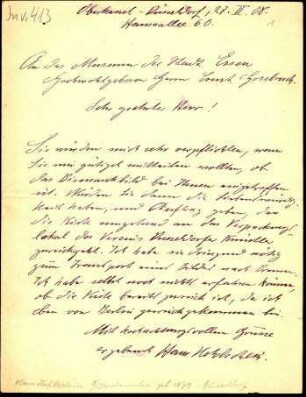 Inv. 413
Oberkassel-Düsseldorf, 27. II. 08.
Hansaallee 60.
An das Museum der Stadt Essen
Hochwohlgeboren Herrn Ernst Gosebruch.
Sehr geehrter Herr!
Sie würden mich sehr verpflichten, wenn
Sie mir gütigst mitteilen wollten, ob
das Bismarckbild bei Ihnen eingetroffen
ist. Würden Sie dann die Liebenswürdig-
keit haben, und Auftrag geben, dass
die Kiste umgehend an das Verpackungs-
lokal des Vereins Düsseldorfer Künstler
zurückgeht. Ich habe sie dringend nötig
zum Transport eines Bildes nach
Ich habe selbst noch nicht erfahren können,
ob die Kiste bereits zurück ist, da ich
eben von Berlin zurückgekommen bin.
Mit hochachtungsvollem Grusse
ergebenst Hans Kohlschein.